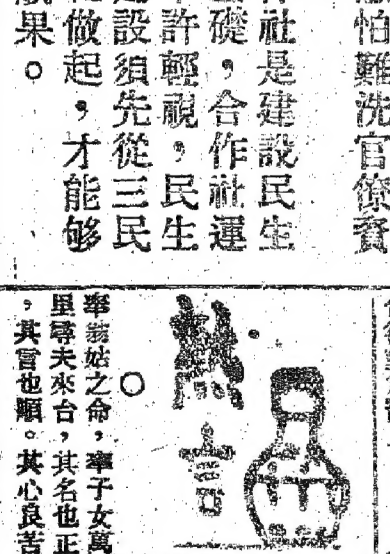 怕難洗官僚資
社是建設民生
礎，合作社運
許輕視，民生
設須先從三民
做起，才能够
果。
言
○
奉翁姑之命，率子女萬
里尋夫來台，其名也正
，其言也順。其心良苦